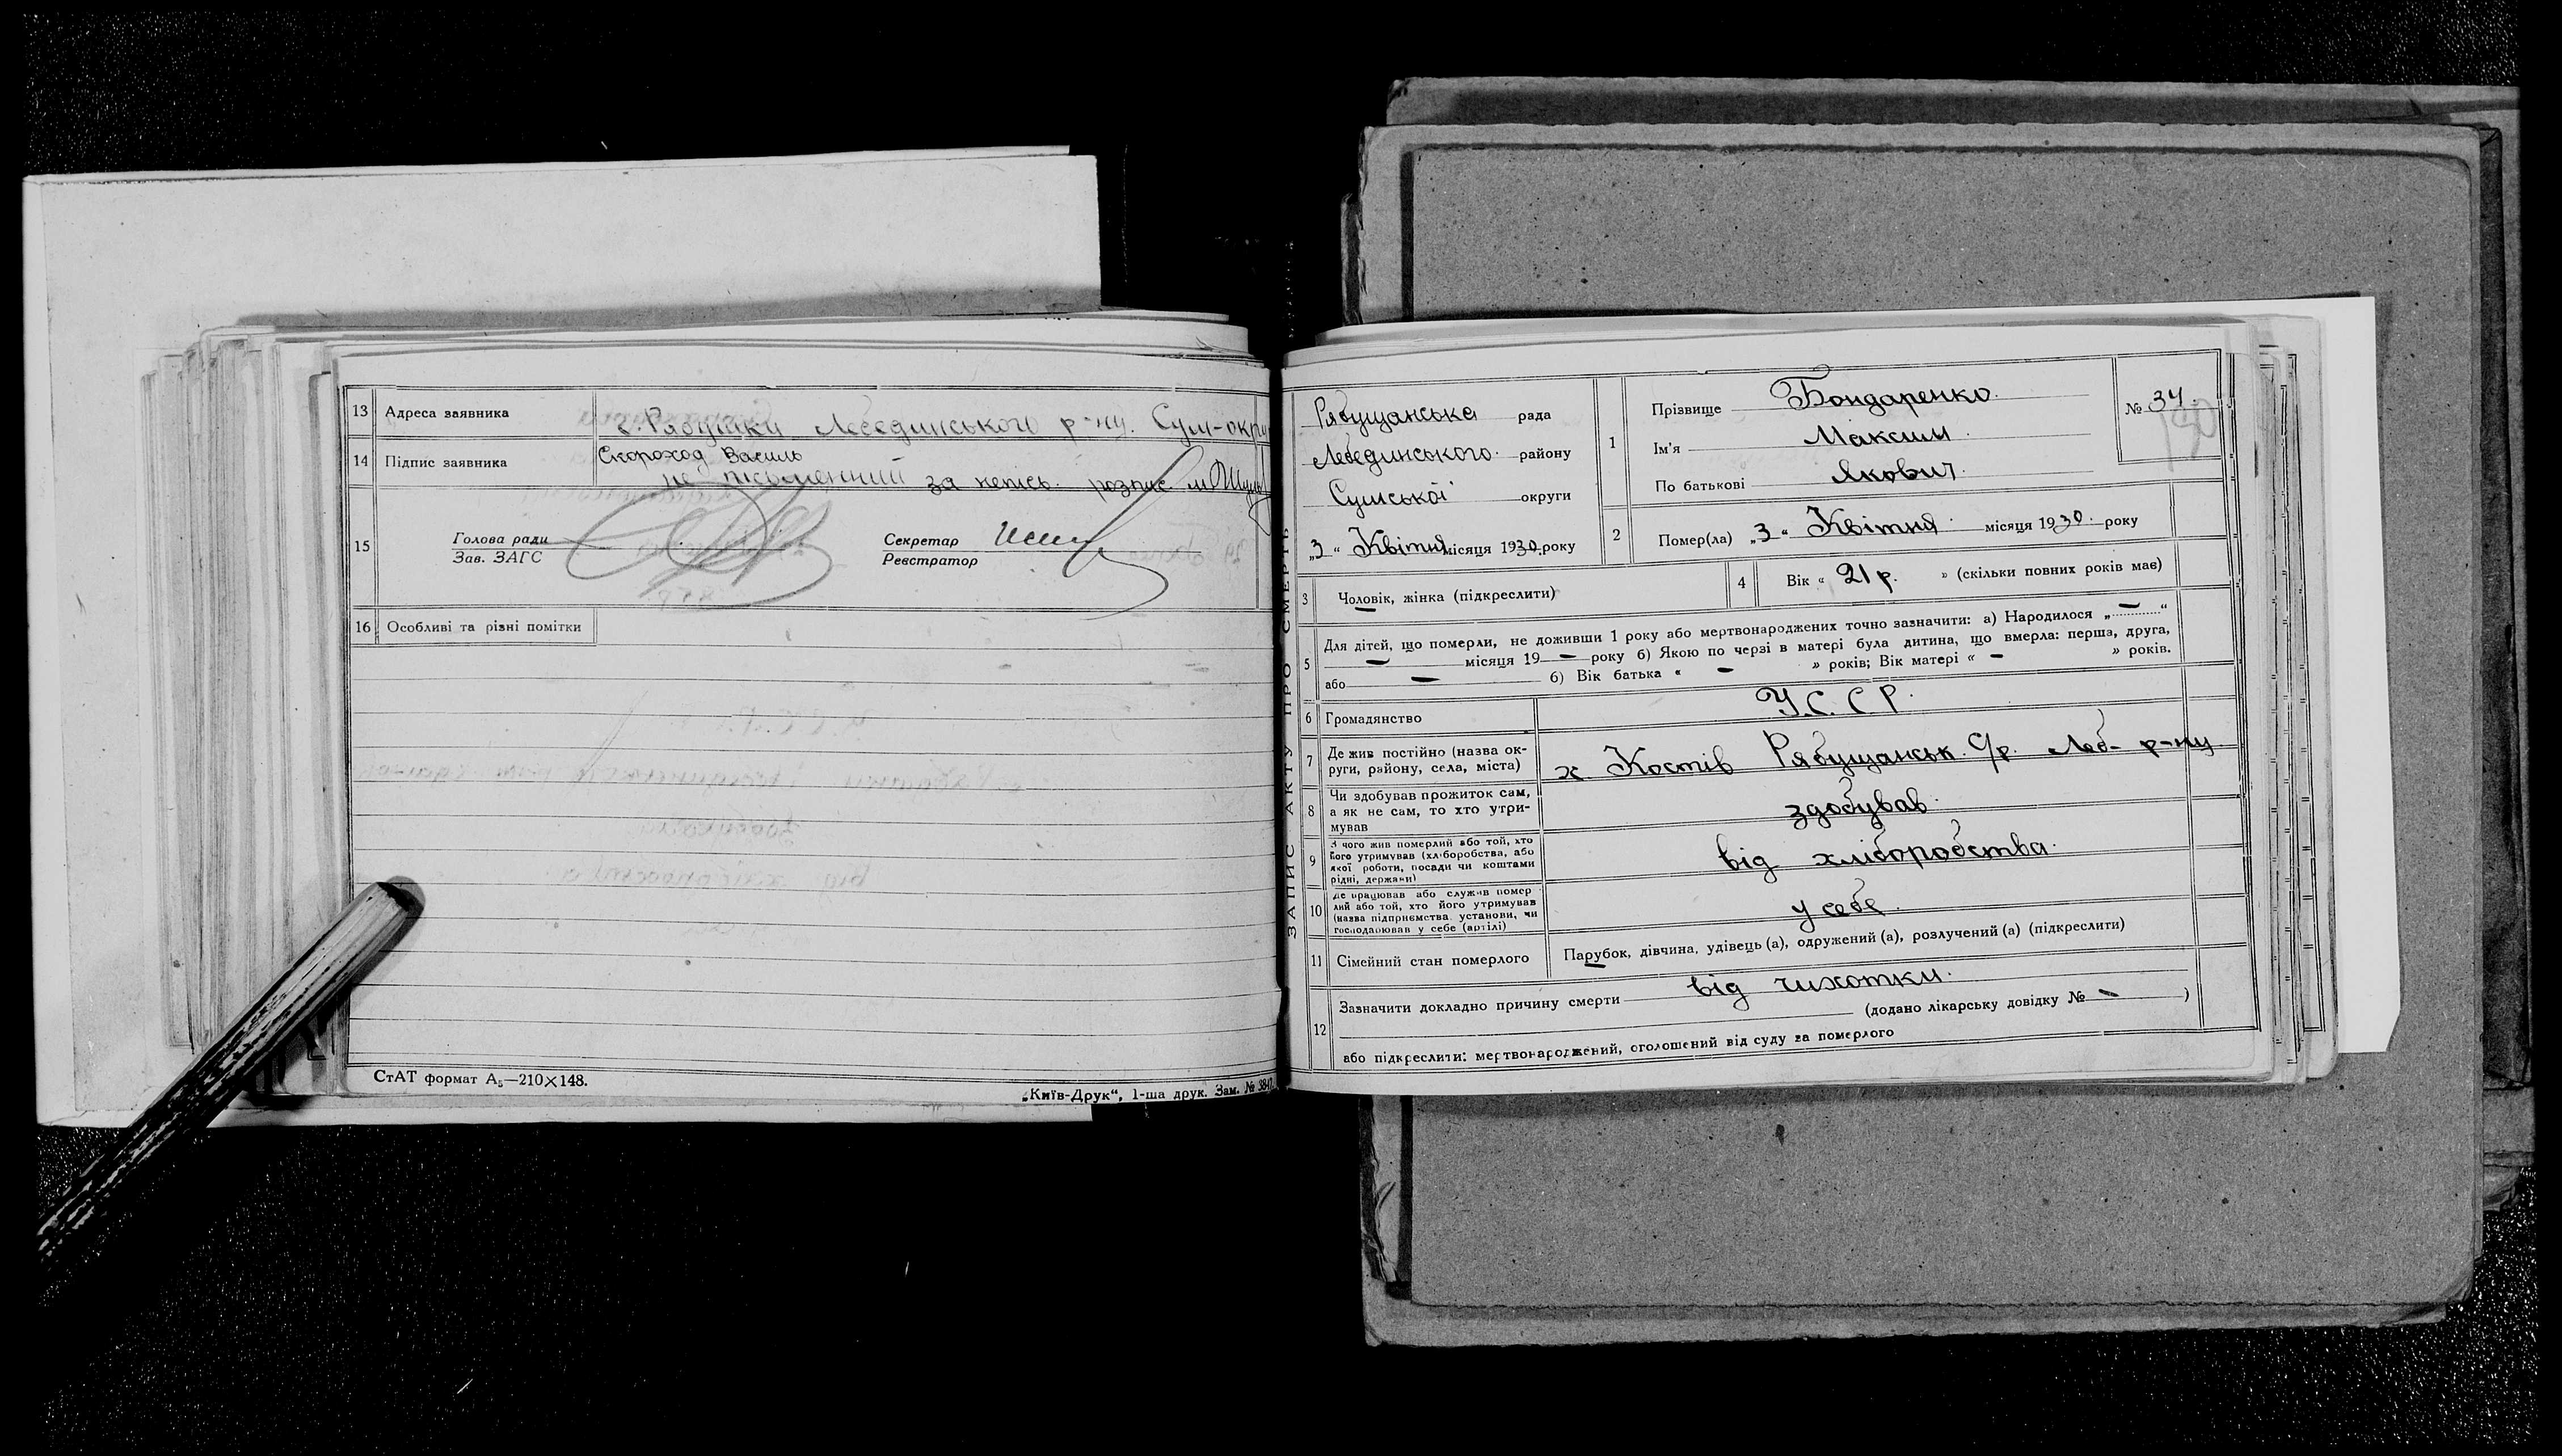 13 Адреса заявника с. Рябушки Лебединського р-ну. Сум-окру
14 Підпис заявника Скороход Василь
не письменний за непісь. розпис.
15
Голова ради Секретар
Зав. ЗАГС Реєстратор
16 Особливі та різні помітки
СтАТ формат А₅—210×148.
„Київ-Друк“, 1-ша друк. Зам. №
ЗАПИС АКТУ ПРО СМЕРТЬ
Рябущанська рада
Лебединського району
Сумської округи
„3“ Квітня місяця 1930 року
1 Прізвище Бондаренко
Ім'я Максим
По батькові Якович
№ 34.
2 Помер(ла) „3“ Квітня місяця 1930. року
3 Чоловік, жінка (підкреслити)
4 Вік « 21 р. » (скільки повних років має)
5 Для дітей, що померли, не доживши 1 року або мертвонароджених точно зазначити: а) Народилося „—“
— місяця 19 — року б) Якою по черзі в матері була дитина, що вмерла: перша, друга,
або — б) Вік батька « — » років; Вік матері « — » років.
6 Громадянство У.С.С.Р.
7 Де жив постійно (назва ок-
руги, району, села, міста) х Костів Рябущанськ. С/р. Леб- р-ну
8 Чи здобував прожиток сам,
а як не сам, то хто утри-
мував здобував
9 З чого жив померлий або той, хто
його утримував (хліборобства, або
якої роботи, посади чи коштами
рідні, держави) від хліборобства.
10 Де працював або служив помер
лий або той, хто його утримував
(назва підприємства, установи, чи
господарював у себе (артілі) у себе.
11 Сімейний стан померлого Парубок, дівчина, удівець (а), одружений (а), розлучений (а) (підкреслити)
12 Зазначити докладно причину смерти від чихотки.
(додано лікарську довідку № — )
або підкреслити: мертвонароджений, оголошений від суду за померлого